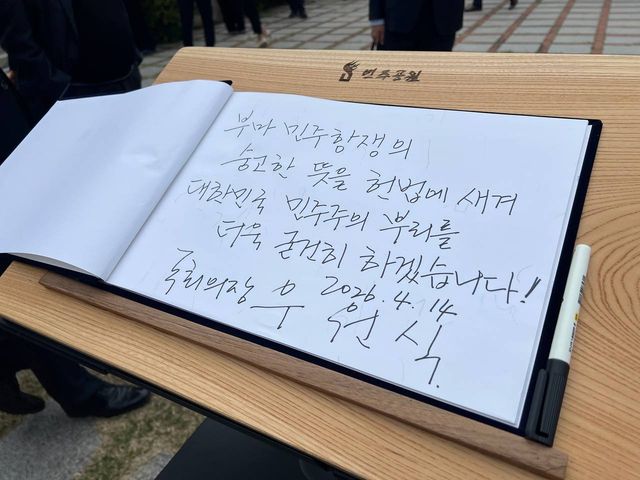 민주공원
부마 민주항쟁의
숭고한 뜻을 헌법에 새겨
대한민국 민주주의 뿌리를
더욱 굳건히 하겠습니다!
2026. 4. 14
국회의장 우 원 식.